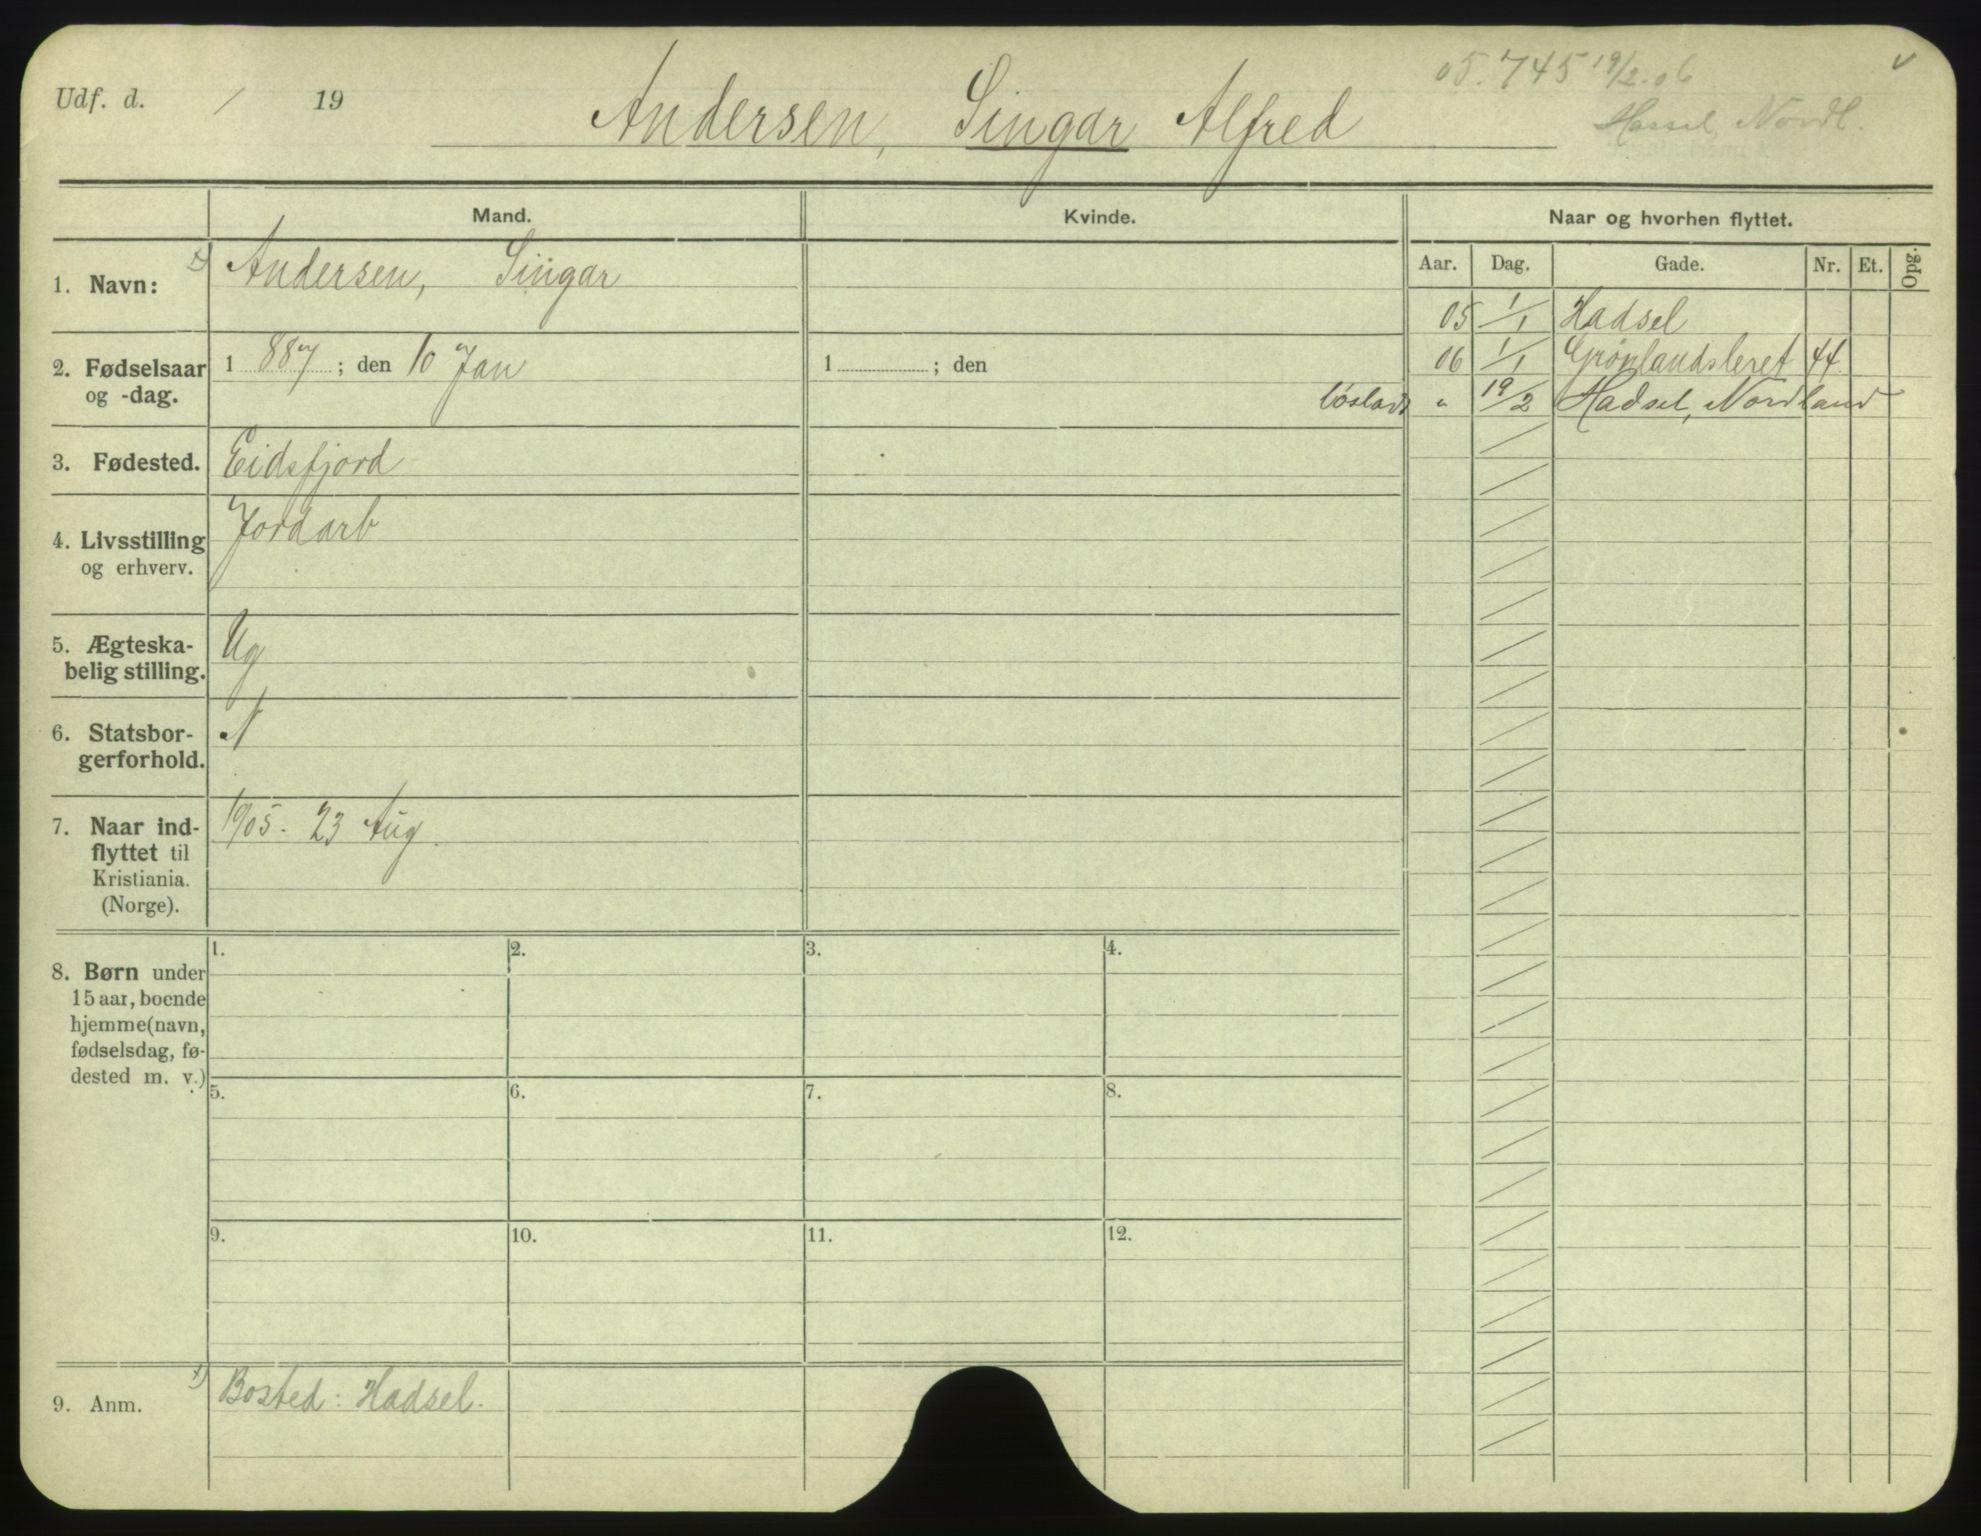 05.745 19/2.06 v
Udf. d. / 19 Andersen, Singar Alfred Hassel, Nordl.
Mand. Kvinde. Naar og hvorhen flyttet.
Aar. Dag. Gade. Nr. Et. Opg.
1. Navn: Andersen, Singar
05 1/1 Hadsel
2. Fødselsaar og -dag. 1 887; den 10 Jan 1 ; den
06 1/1 Grønlandsleret 44
løsladt " 19/2 Hadsel, Nordland
3. Fødested. Eidsfjord
4. Livsstilling og erhverv. Jordarb
5. Ægteska-
belig stilling. Ug
6. Statsbor-
gerforhold. N
7. Naar ind-
flyttet til
Kristiania.
(Norge). 1905. 23 Aug.
8. Børn under
15 aar, boende
hjemme (navn,
fødselsdag, fø-
dested m. v.)
1. 2. 3. 4.
5. 6. 7. 8.
9. 10. 11. 12.
9. Anm. Bosted: Hadsel.